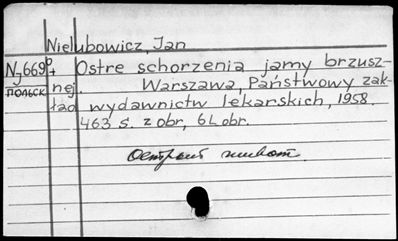 Nielubowicz, Jan
N 669 Ostre schorzenia jamy brzusz-
польск nej. Warszawa, Państwowy zak-
ład wydawnictw lekarskich, 1958.
463 s. z obr, 6 l. obr.
Острый живот